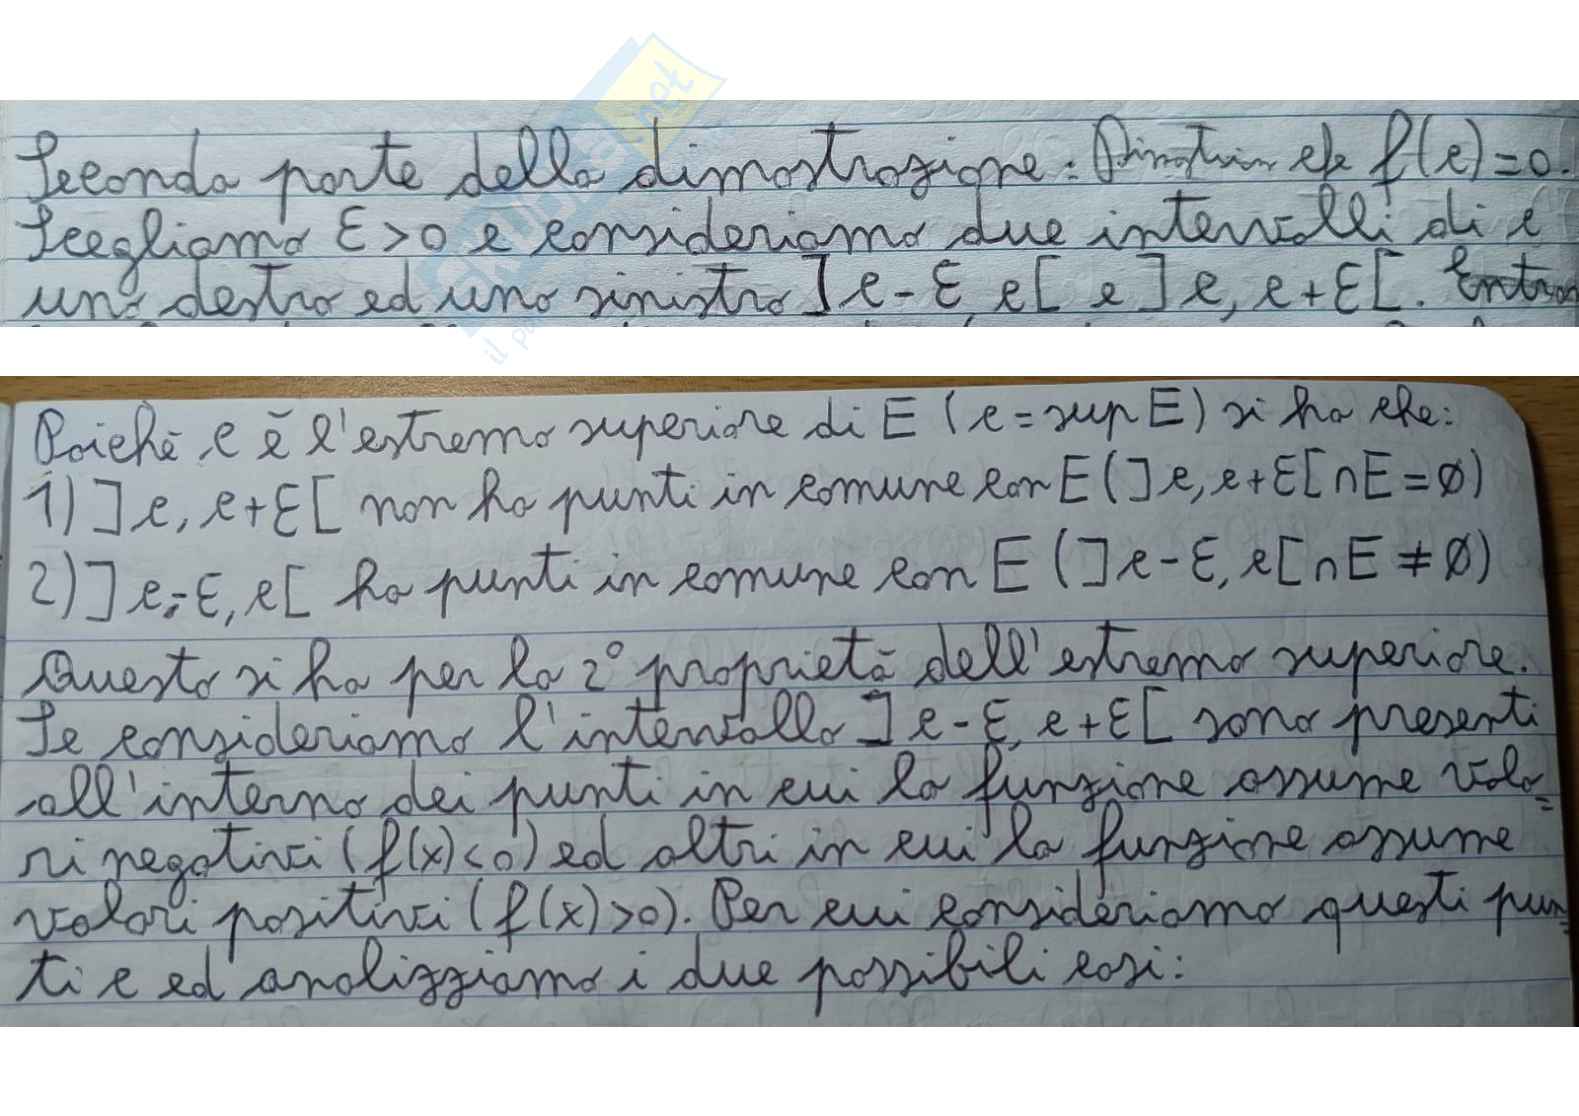 Seconda parte della dimostrazione: Dimostriam che f(c)=0.
Scegliamo ε>0 e consideriamo due intervalli di c
uno destro ed uno sinistro ]c-ε, c[ e ]c, c+ε[. Entram
Poichè c è l'estremo superiore di E (c=sup E) si ha che:
1) ]c, c+ε[ non ha punti in comune con E (]c, c+ε[∩E=∅)
2) ]c-ε, c[ ha punti in comune con E (]c-ε, c[∩E≠∅)
Questo si ha per la 2° proprietà dell'estremo superiore.
Se consideriamo l'intervallo ]c-ε, c+ε[ sono presenti
all'interno dei punti in cui la funzione assume valo=
ri negativi (f(x)<0) ed altri in cui la funzione assume
valori positivi (f(x)>0). Per cui consideriamo questi pun=
ti c ed analizziamo i due possibili casi: